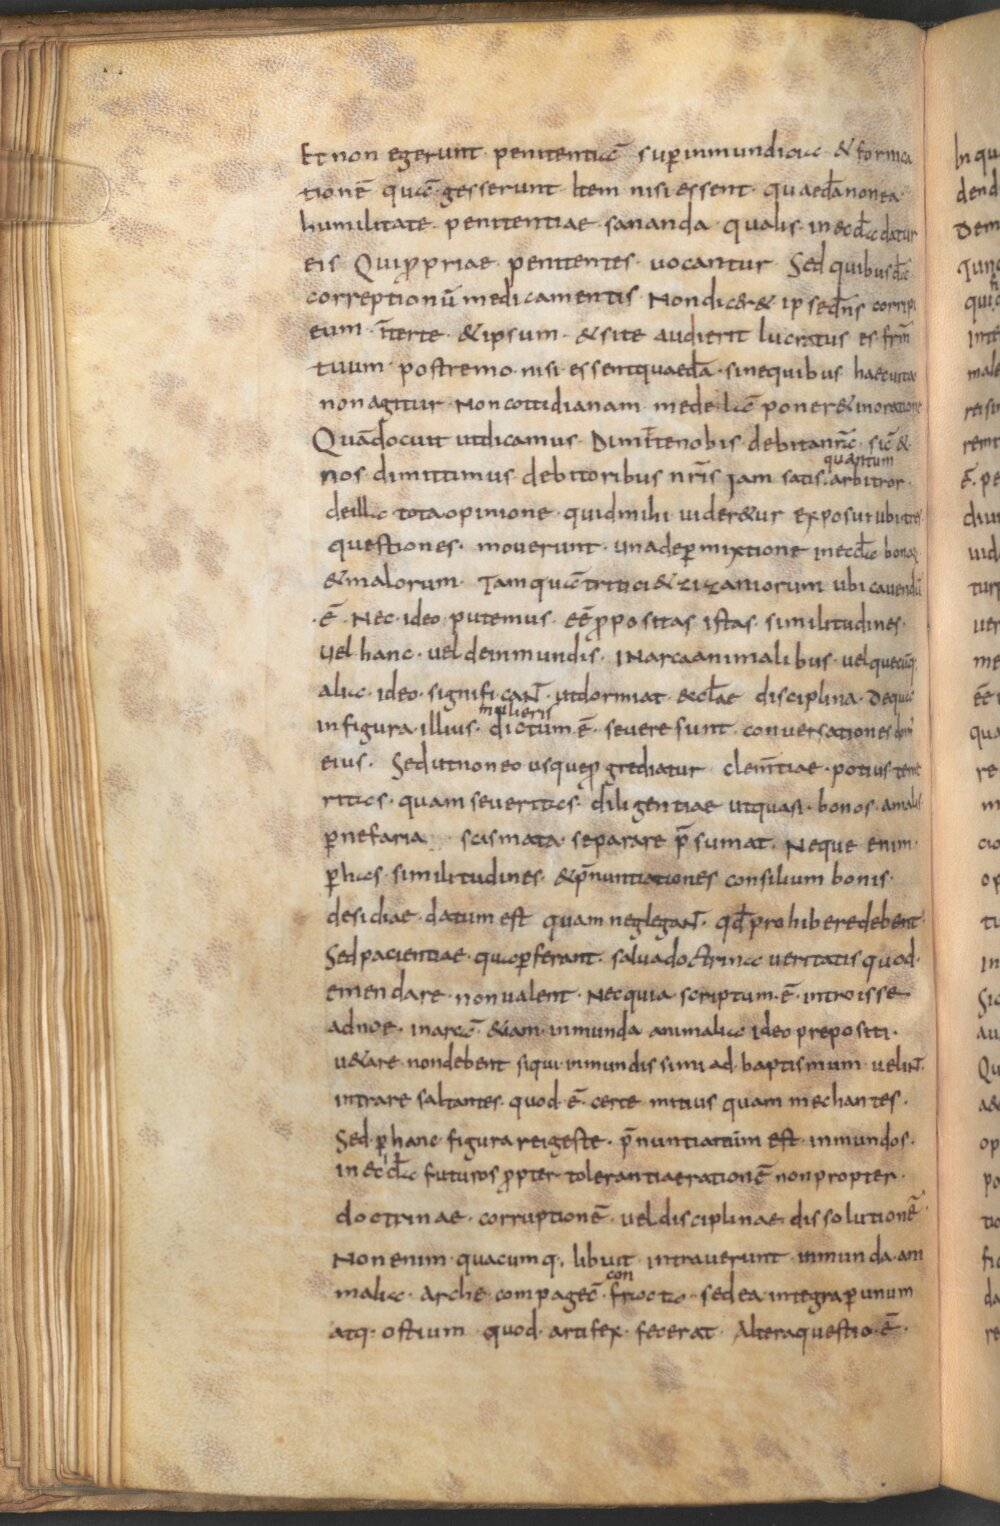 Et non egerunt penitentiā sup inmundicia & fornica
tionē quā gesserunt Item nisi essent quaedā non ea
humilitate penitentiae sananda qualis in eccl̄a datur
eis Qui ꝓpriae penitentes vocantur Sed quibusdā
correptionū medicamentis Non dic&& ipse dn̄s corripi
eum īter te & ipsum & si te audierit lucratus es frm̄
tuum postremo nisi essent quaedā sine quibus haec vita
non agitur Non cottidianam medelā poner& in oratione
Quā docuit ut dicamus Dimitte nobis debita nr̄a sic̄ &
nos dimittimus debitoribus nr̄is Iam satis arbitror
quantum
de illa tota opinione quid mihi uider&ur exposui ubi tres
questiones mouerunt una de ꝑmixtione in eccl̄a bonoꝝ
& malorum Tamquā tritici & zizaniorum ubi cauendū
ē Nec ideo putemus eē ꝓpositas istas similitudines
Vel hanc uel de inmundis IN arca animalibus uel quecūq;
alia ideo significaNT ut dormiat eccl̄ae disciplina De qua
in figura illius dictum ē seuere sunt conuersationes dom'
mulieris
eius Sed ut non eo usque ꝓgrediatur clem̄tiae potius teme
ritas quam seueritas diligentiae ut quasi bonos a malis
ꝑ nefaria scismata separare p̄sumat Neque enim
ꝑ has similitudines & p̄nuntiationes consilium bonis
desidiae datum est quam neglegaNT qd̄ prohibere debent
Sed pacientiae qua ꝑferant salua doctrina ueritatis quod
emendare non ualent Nec quia scriptum ē introisse
ad noe in arcā &iam inmunda animalia ideo prepositi
u&are non debent siqui inmundissimi ad baptismum uelinT
intrare saltantes quod ē certe mitius quam mechantes
Sed ꝑ hanc figura rei geste p̄nuntiatum est inmundos
in eccl̄a futuros ꝓpter tolerantiae rationē non propter
doctrinae corruptionē uel disciplinae dissolutionē
Non enim quacumq; libuit intrauerunt inmunda ani
malia Arche compagē fracta sed ea integra ꝑ unum
con
atq; ostium quod artifex fecerat Altera questio ē